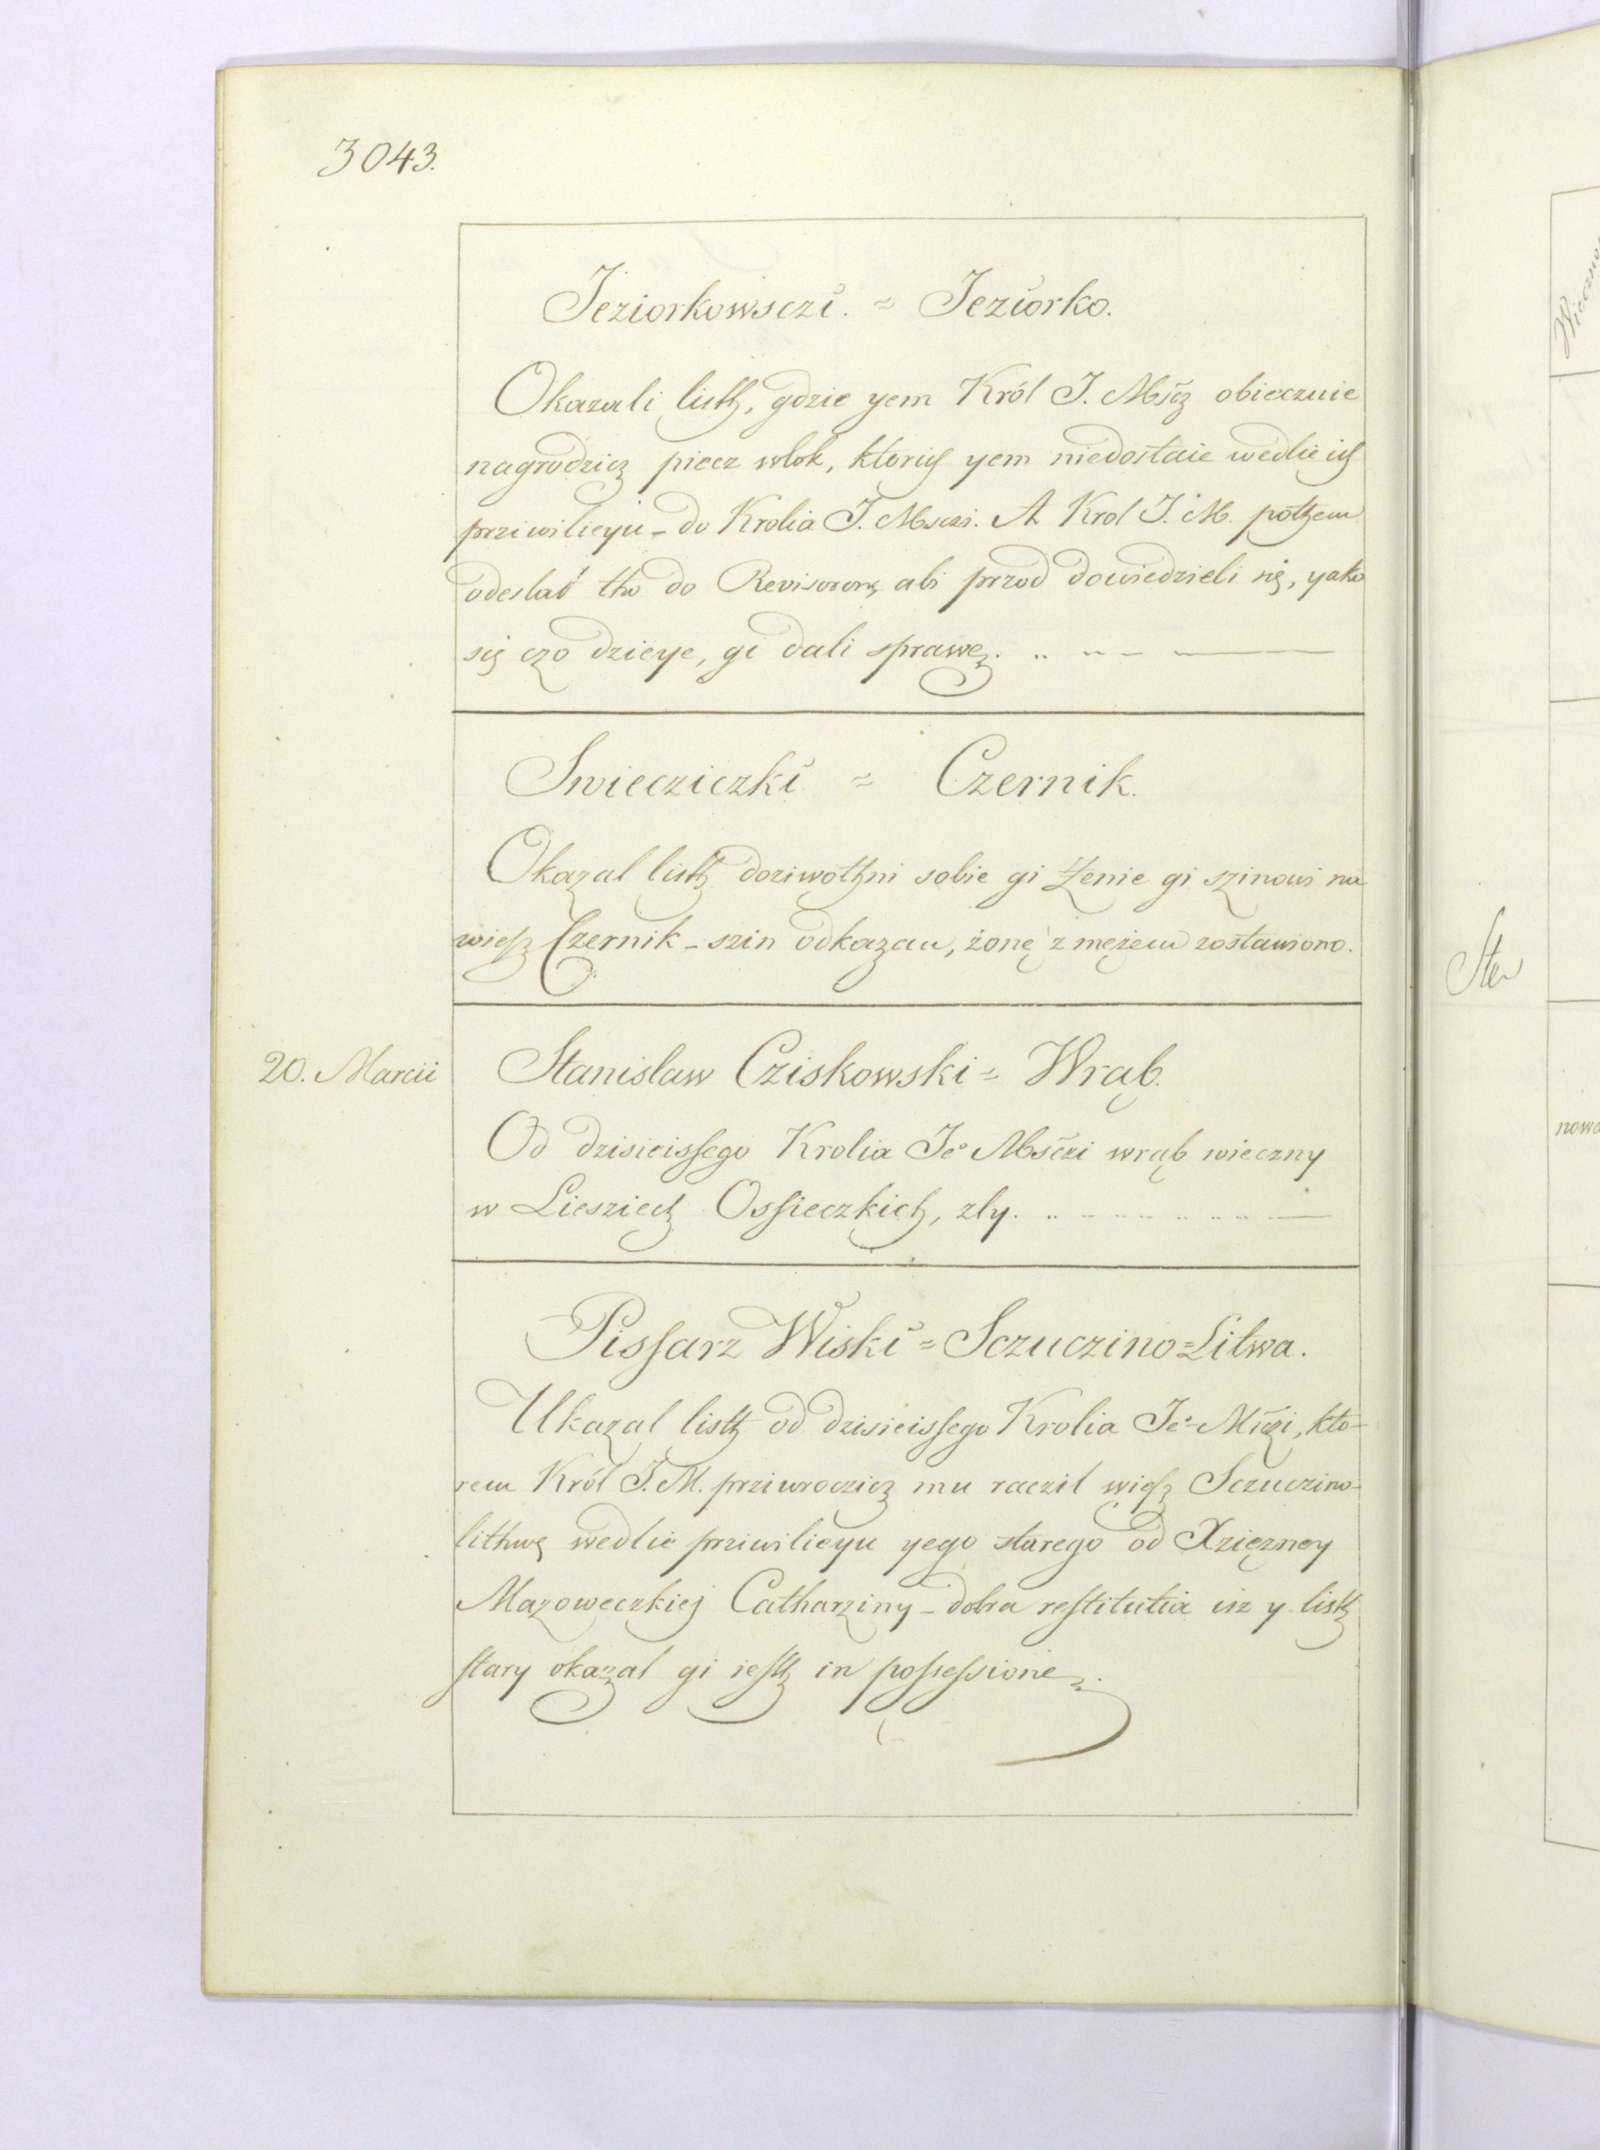 3043.
Jeziorkowsczi. = Jeziorko.
Okazali listh, gdzie yem Król J. Mścz obieczuie
nagrodzicz piecz wlok, ktorich yem niedostaie wedlie ich
prziwilieyu - do Krolia J. Msczi. A Krol J. M. pothem
odeslał tho do Revisorow, abi przod dowiedzieli się, yako
się czo dzieye, gi dali sprawę.
Swiecziczki = Czernik.
Okazal listh doziwothni sobie gi Żenie gi szinowi na
wiesz Czernik - szin odkazan, żonę z mężem zostawiono.
20. Marcii
Stanislaw Cziskowski = Wrąb.
Od dzisieissego Krolia Je° Msczi wrąb wieczny
w Liesziech Ossieczkich, zly.
Pissarz Wiski = Sczuczino = Litwa.
Ukazal listh od dzisieissego Krolia Je° Msczi, kto-
rem Król J. M. prziwroczicz mu raczil wiesz Sczuczino-
lithwę wedlie prziwilieyu yego starego od Xziężney
Mazoweczkiej Catharziny - dobra restitutia isz y listh
stary okazal gi iesth in possessione.
Wieczno
Ster
nowo